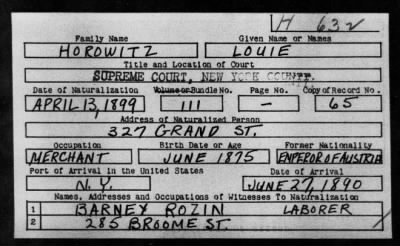 H 632
Family Name Given Name or Names
HOROWITZ LOUIE
Title and Location of Court
SUPREME COURT, NEW YORK COUNTY.
Date of Naturalization Volume or Bundle No. Page No. Copy of Record No.
APRIL 13, 1899 111 — 65
Address of Naturalized Person
327 GRAND ST.
Occupation Birth Date or Age Former Nationality
MERCHANT JUNE 1875 EMPEROR OF AUSTRIA
Port of Arrival in the United States Date of Arrival
N.Y. JUNE 27, 1890
Names, Addresses and Occupations of Witnesses To Naturalization
1 BARNEY ROZIN LABORER
2 285 BROOME ST.